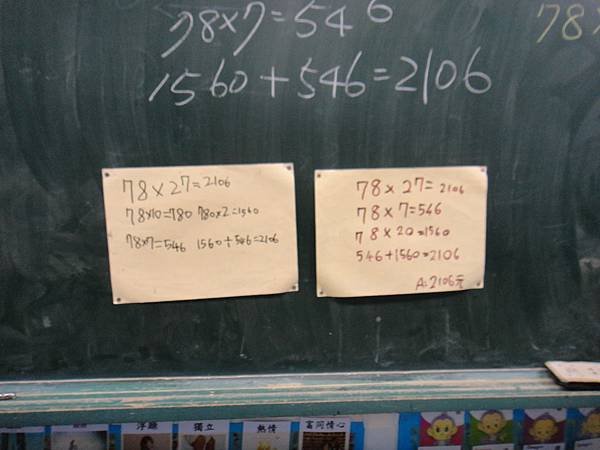 78×7=546
78
1560+546=2106
78×27=2106
78×10=780 780×2=1560
78×7=546 1560+546=2106
78×27=2106
78×7=546
78×20=1560
546+1560=2106
A:2106元
浮躁
獨立
熱情
富同情心